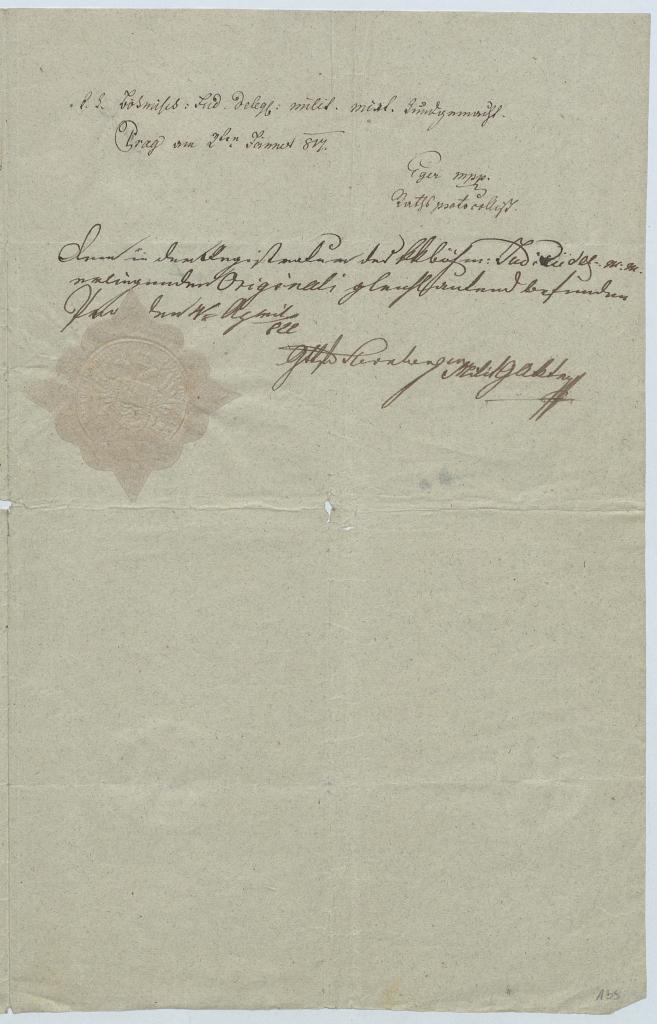 k. k. Böhmisch: Jud. deleg: milit. mixt. kundgemacht.
Prag am 2ten Janner 817.
Eger mpp.
Rathsprotocollist.
Dem in der Registratur des kk böhm: Judicii del. m. m.
erliegenden Originali gleichlautend befunden
Prag den 4n April
822
Sternberger
133